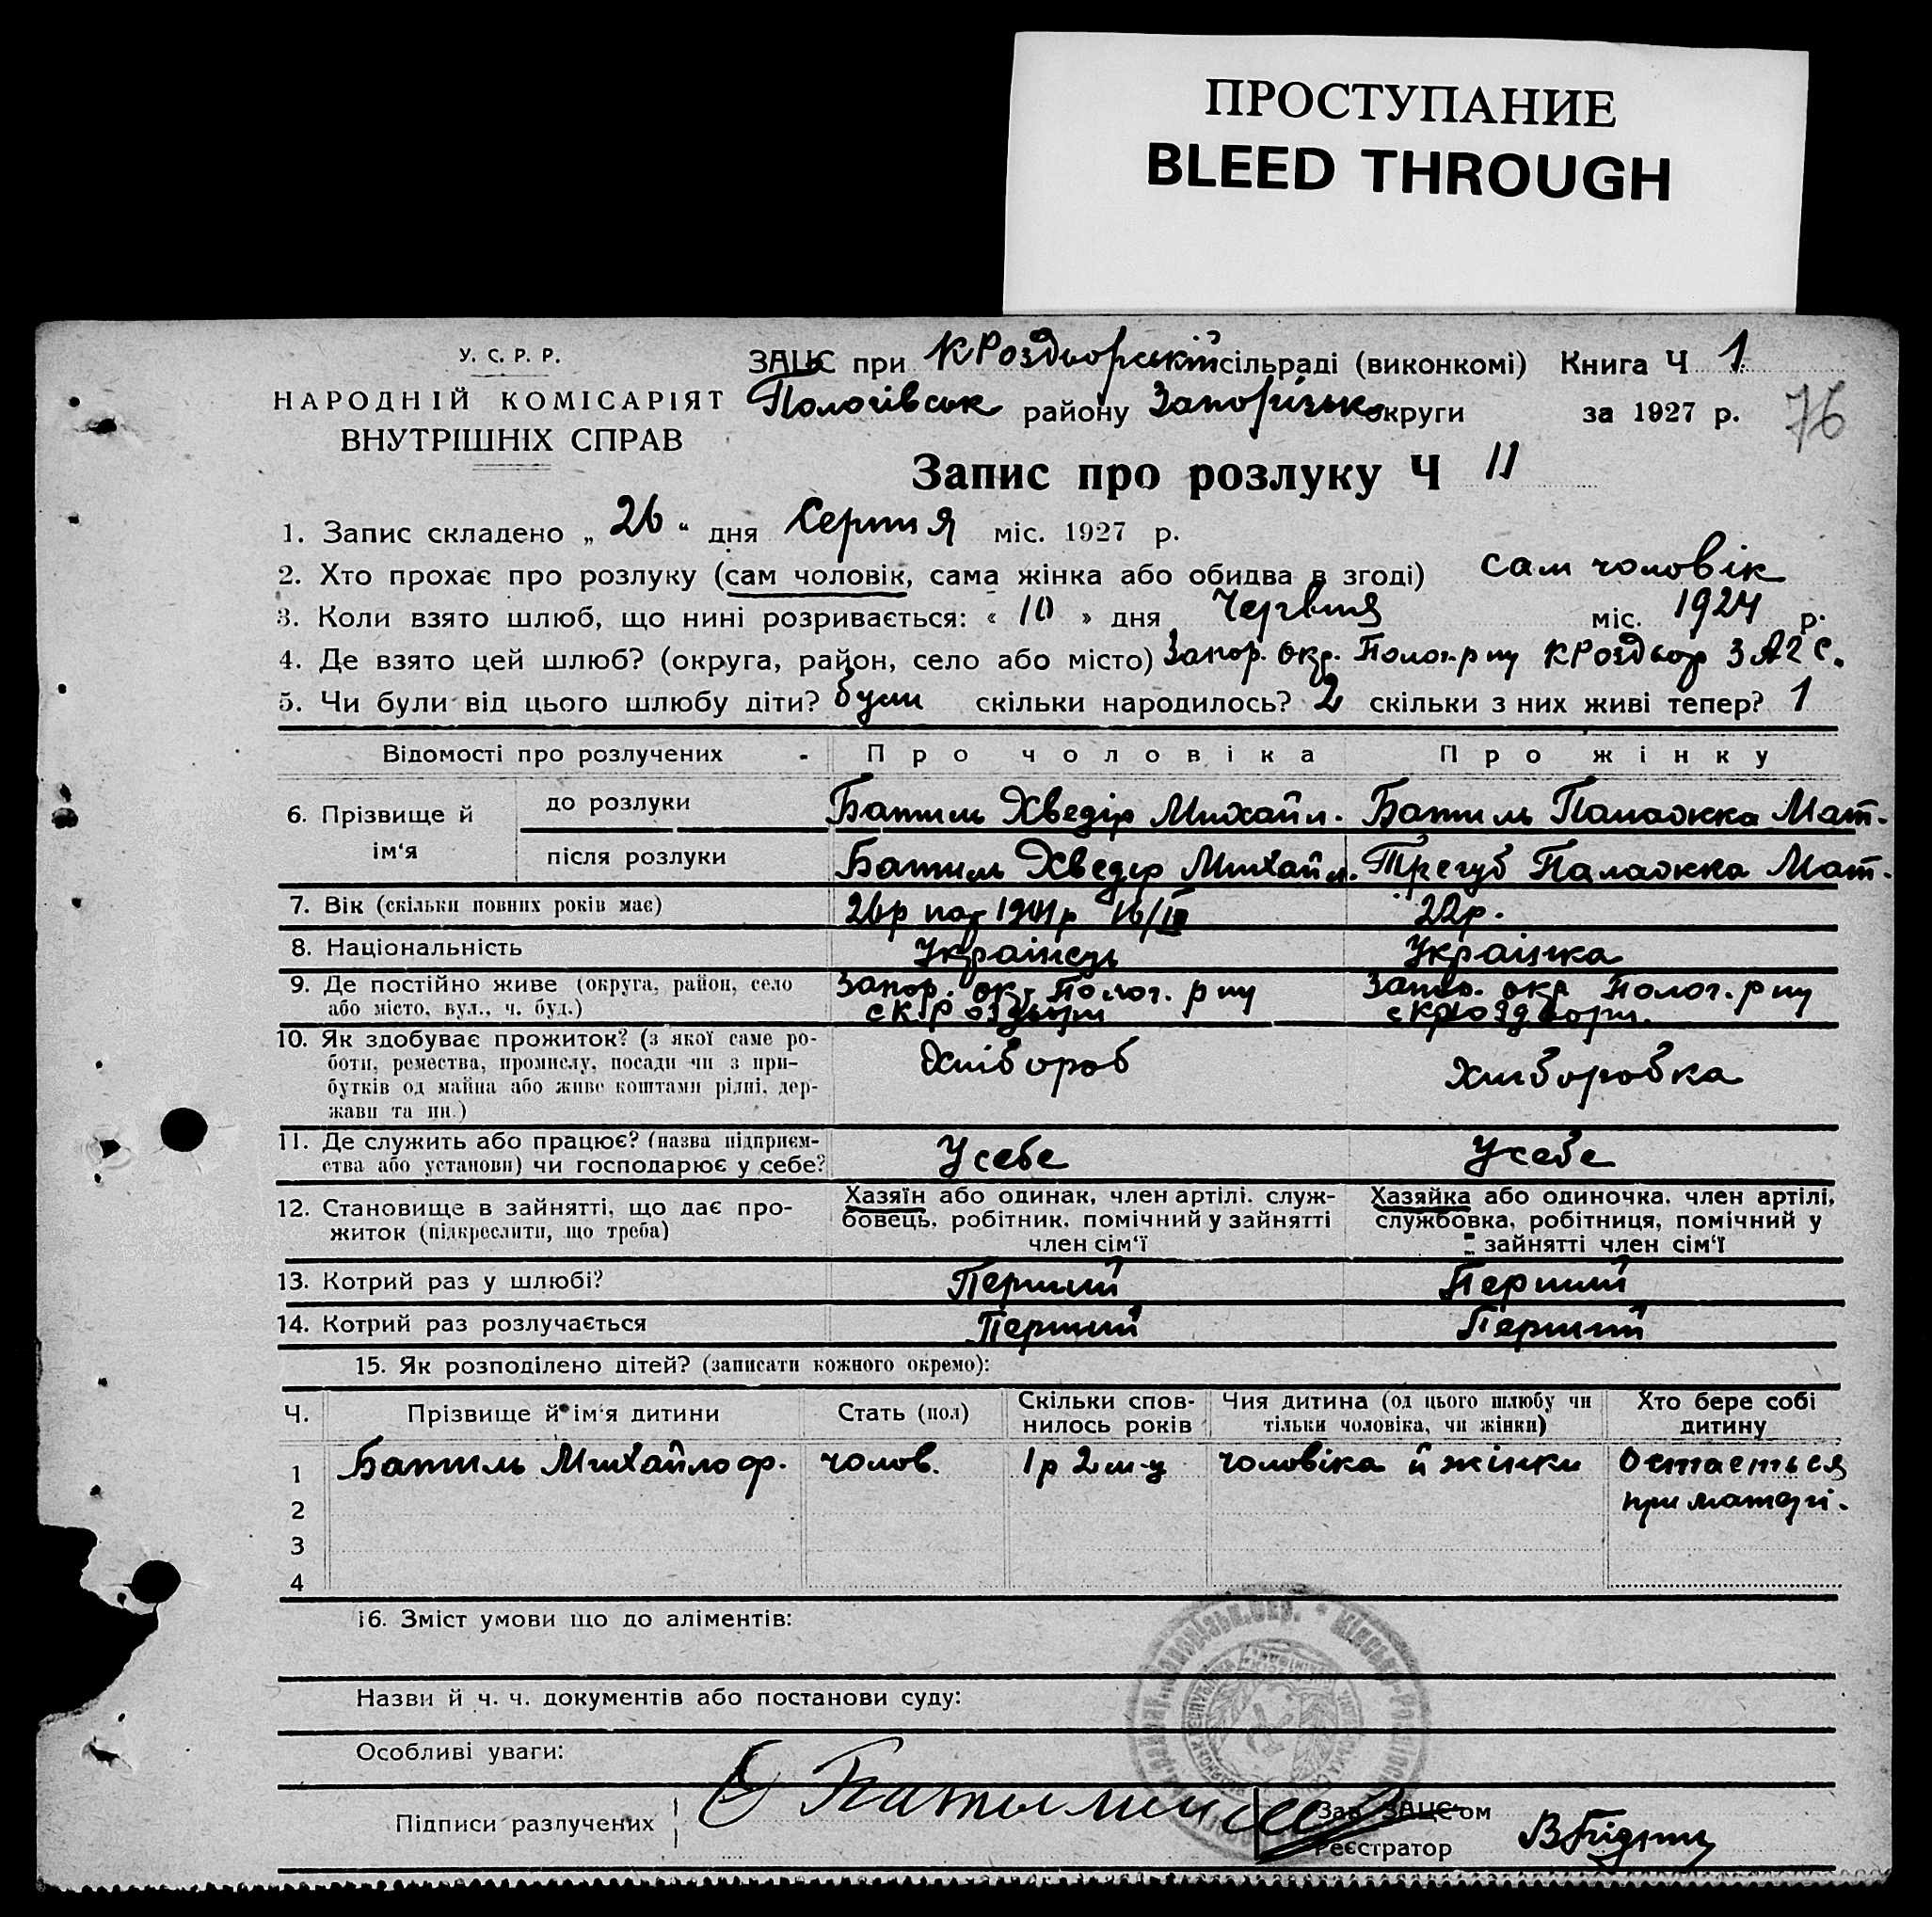 ПРОСТУПАНИЕ
BLEED THROUGH
У. С. Р. Р.
НАРОДНІЙ КОМІСАРІЯТ
ВНУТРІШНІХ СПРАВ
ЗАЦС при КРоздорський сільраді (виконкомі) Книга Ч 1
Пологівськ району Запорізьк округи за 1927 р.
76
Запис про розлуку Ч 11
1. Запис складено „ 26 “ дня Серпня міс. 1927 р.
2. Хто прохає про розлуку (сам чоловік, сама жінка або обидва в згоді) сам чоловік
3. Коли взято шлюб, що нині розривається: « 10 » дня Червня міс. 1924 р.
4. Де взято цей шлюб? (округа, район, село або місто) Запор. окр. Полог. р ну КРоздор ЗАГС.
5. Чи були від цього шлюбу діти? були скільки народилось? 2 скільки з них живі тепер? 1
Відомості про розлучених Про чоловіка Про жінку
6. Прізвище й ім‘я
до розлуки Батиль Хведір Михайл. Батиль Палажка Мат.
після розлуки Батиль Хведір Михайл. Трегуб Палажка Мат.
7. Вік (скільки повних років має) 26р нар 1901р 16/III 22р.
8. Національність Українець Українка
9. Де постійно живе (округа, район, село
або місто, вул., ч. буд.)
Запор. окр. Полог. р ну
Запор. окр Полог. р ну
10. Як здобуває прожиток? (з якої саме ро-
боти, ремества, промислу, посади чи з при-
бутків од майна або живе коштами рідні, дер-
жави та ин.)
Хлібороб Хліборобка
11. Де служить або працює? (назва підприєм-
ства або установи) чи господарює у себе?
У себе У себе
12. Становище в зайнятті, що дає про-
житок (підкреслити, що треба)
Хазяїн або одинак, член артілі, служ-
бовець, робітник, помічний у зайнятті
член сім‘ї
Хазяйка або одиночка, член артілі,
службовка, робітниця, помічний у
зайнятті член сім‘ї
13. Котрий раз у шлюбі? Перший Перший
14. Котрий раз розлучається Перший Перший
15. Як розподілено дітей? (записати кожного окремо):
Ч. Прізвище й ім‘я дитини Стать (пол) Скільки спов-
нилось років Чия дитина (од цього шлюбу чи
тільки чоловіка, чи жінки) Хто бере собі
дитину
1 Батиль Михайло ф. чолов. 1 р 2 м-ц чоловіка й жінки Остається
при матері.
2
3
4
16. Зміст умови що до аліментів:
Назви й ч. ч. документів або постанови суду:
Особливі уваги:
Підписи разлучених
Зав. ЗАЦС‘ом
Реєстратор